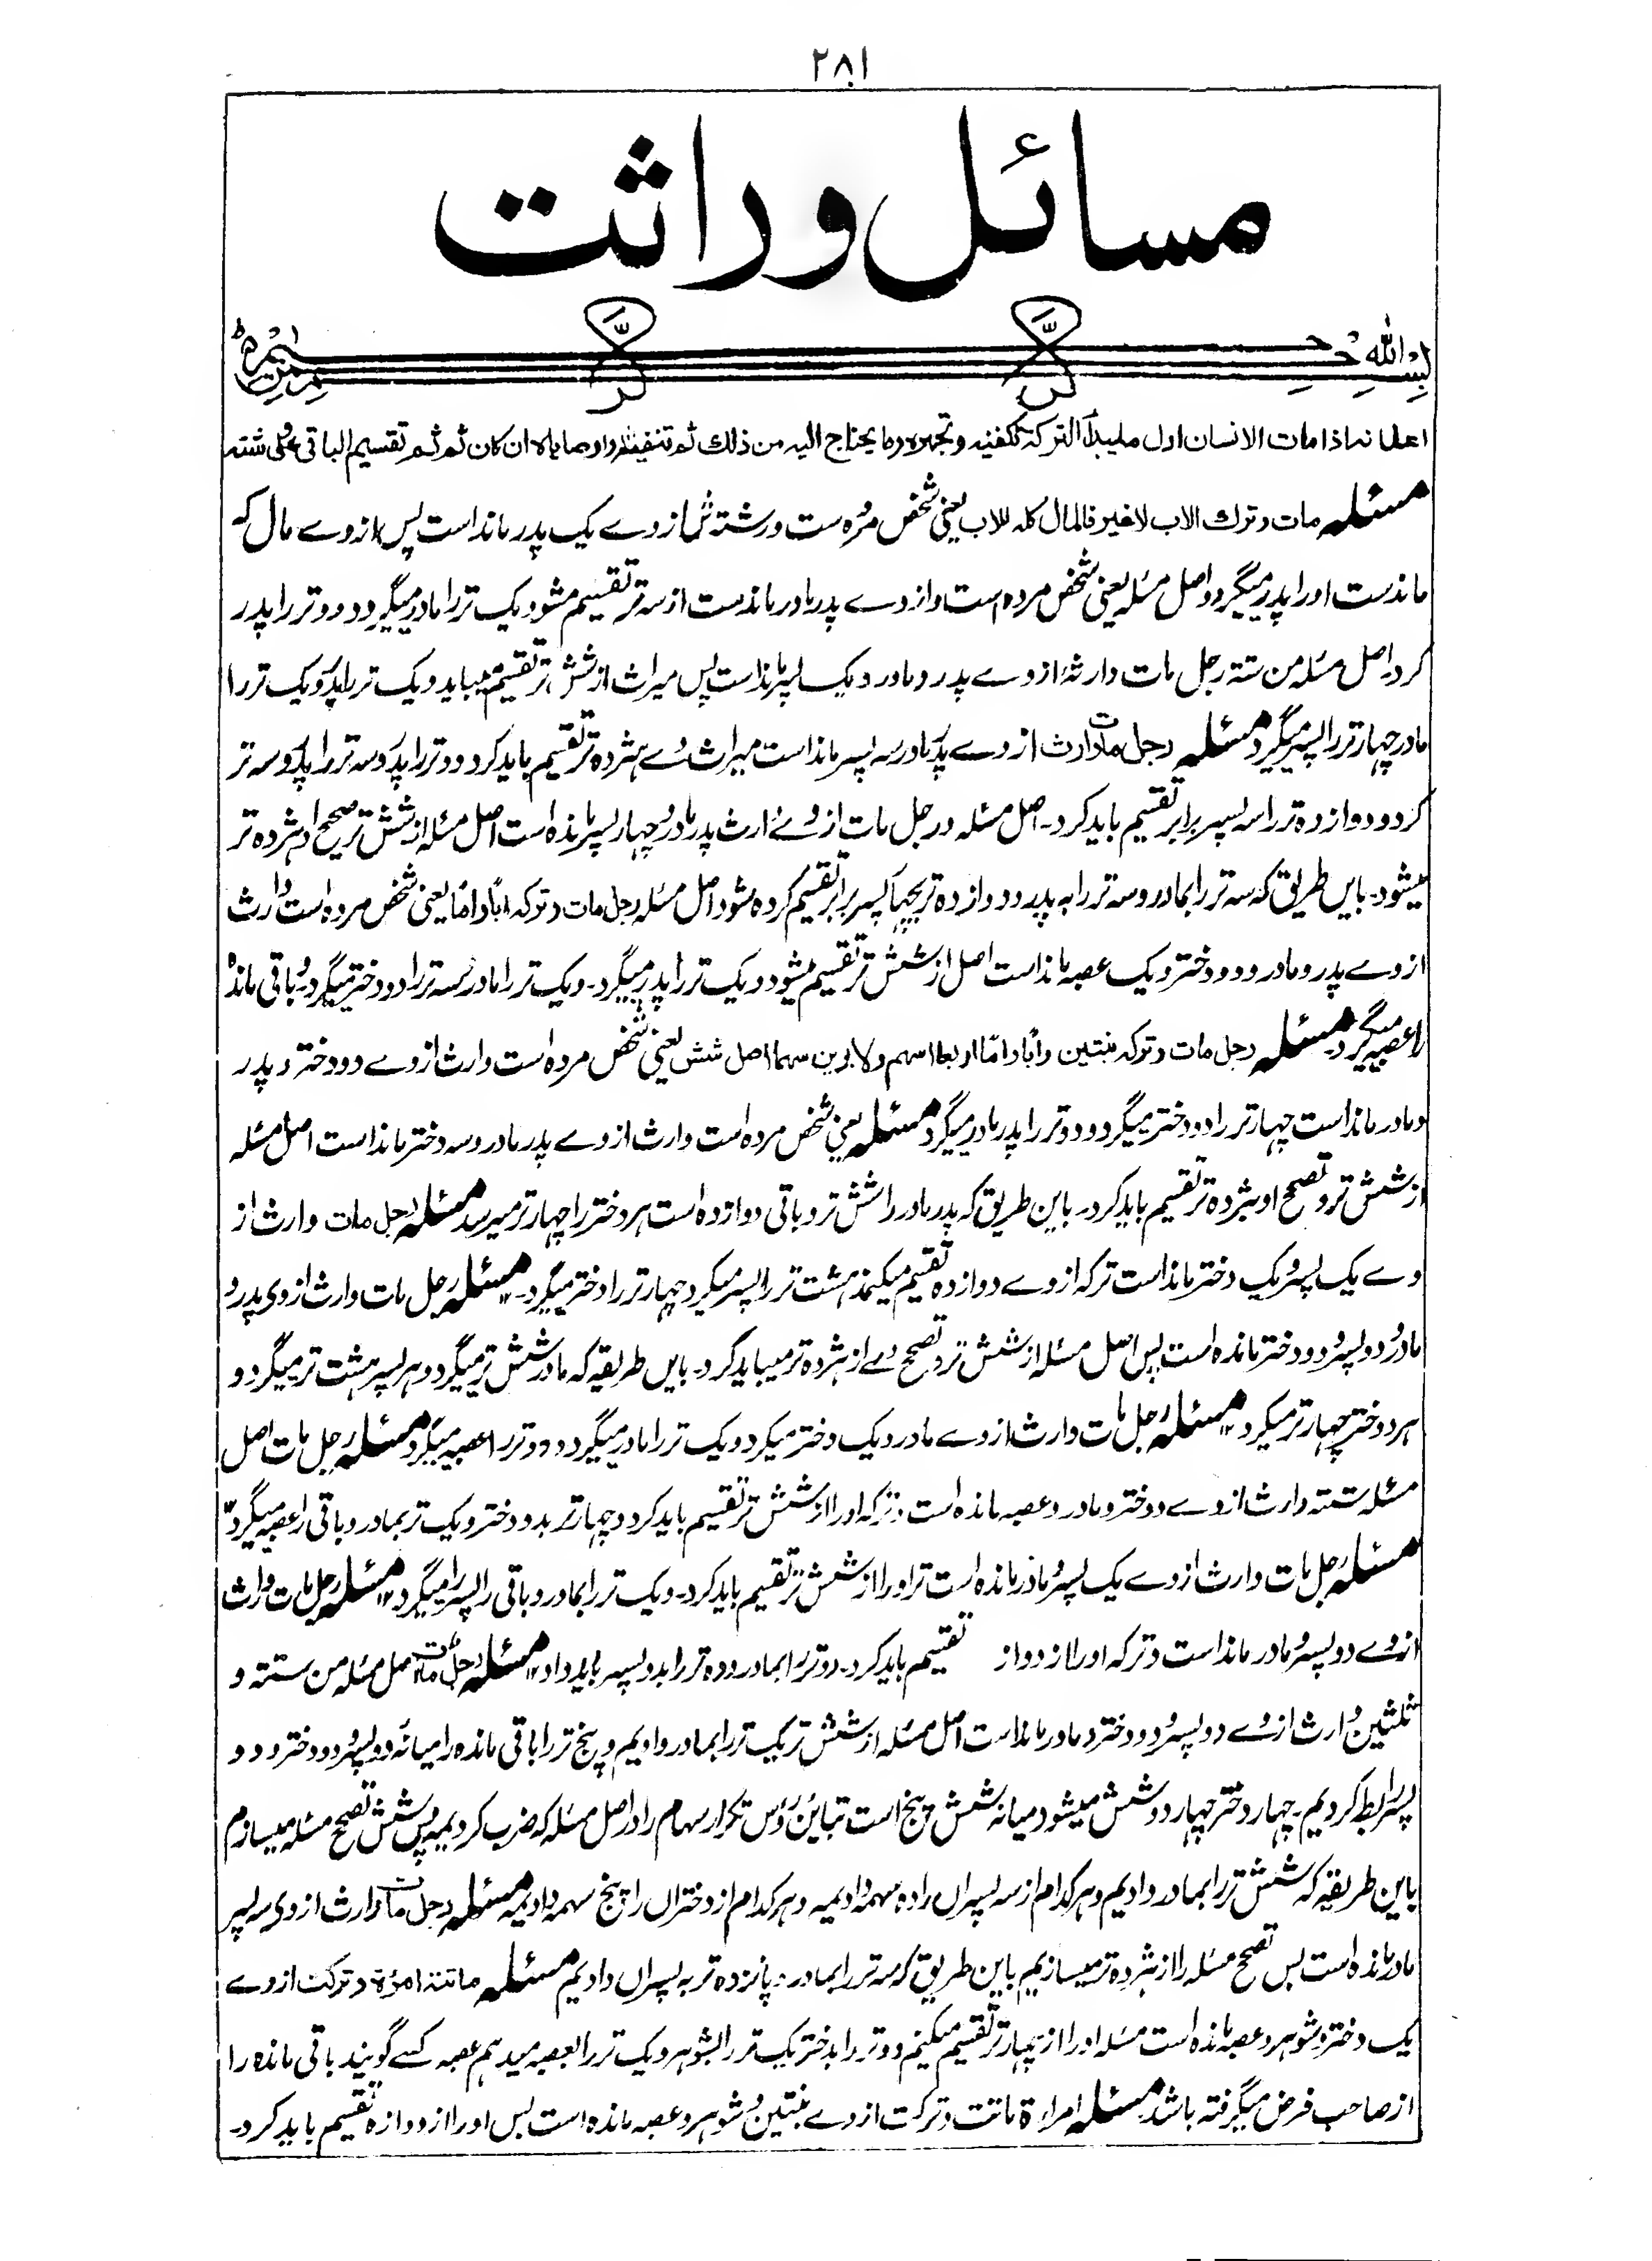 ۲۸۱
مسائل وراثت
بسم الله الرحمن الرحیم
اعلم انه اذا مات الانسان اول ما یبدأ الترکة تکفینه و تجهیزه وما یحتاج الیه من ذلك ثم تنفیذ و وصایاه ان کان ثم ثم تقسیم الباقی علی
مسئله مات و ترك الاب لا غیر فالمال کله للاب یعنی شخص مرده ست و رشته ش از وے یک پدر مانداست پس از وے مال که
ماندست او را پدر میگیرد و اصل مسئله یعنی شخص مرده است و از وے پدر مادر ماندست از سه تر تقسیم مشود یک تر را مادر میگیرد و دو تر را پدر
کرد۔ اصل مسئله من سته رجل مات وارثه از وے پدر و مادر و یک پسر مانداست پس میراث از شش تر تقسیم میباید و یک تر را پدر و یک تر را
مادر چهار تر را پسر میگیرد مسئله رجل مات وارث از وے پدر مادر سه پسر مانداست میراث وے هژده تر تقسیم باید کرد و وتر را پدر و سه تر را پدر و سه تر
کرد و دوازده تر را سه پسر برابر تقسیم باید کرد۔ اصل مسئله در جل مات از وے ارث پدر مادر و چهار پسر مانده است اصل مسئله از شش تر صحیح او هژده تر
میشود۔ بایں طریق که سه تر را بمادر و سه تر را به پدر و دوازده تر بچهار پسر برابر تقسیم کرده شود اصل مسئله رجل مات و ترکه اباً و اماً یعنی شخص مرده است وارث
از وے پدر و مادر و دو دختر و یک عصبه مانداست اصل از شش تر تقسیم میشود و یک تر را پدر میگیرد۔ و یک تر را مادر سه تر را دو دختر میگیرد۔ و باقی مانده
را عصبه میگیرد۔ مسئله رجل مات و ترکه بنتین و أباً و امّاً اربعا اسهم و لابوین سهما اصل شش یعنی شخص مرده است وارث از وے دو دختر و پدر
و مادر مانداست چهار تر را دو دختر میگیرد و دو تر را پدر مادر میگیرد مسئله یعنی شخص مرده است وارث از وے پدر مادر و سه دختر مانداست اصل مسئله
از شش تر و تصحیح او هژده تر تقسیم باید کرد۔ باین طریق که پدر مادر را شش تر و باقی دوازده است هر دختر را چهار تر میرسد مسئله رجل مات وارث از
وے یک پسر و یک دختر مانداست ترکه از وے دوازده تقسیم میکیند هشت تر را پسر میگیرد چهار تر را دختر میگیرد۔ مسئله رجل مات وارث از وی پدر و
مادر و دو پسر و دو دختر مانده است پس اصل مسئله از شش تر و تصحیح وے از هژده تر میباید کرد۔ بایں طریقه که مادر شش تر میگیرد و هر پسر هشت تر میگیرد و
هر دو دختر چهار تر میگیرد۱۲ مسئله رجل مات وارث از وے مادر و یک دختر میگیرد و یک تر را مادر میگیرد و دو تر را عصبه میگیرد مسئله رجل مات اصل
مسئله سته وارث از وے دو دختر و مادر و عصبه مانده است ترکه او را از شش تر تقسیم باید کرد و چهار تر بدو دختر و یک تر بمادر و باقی را عصبه میگیرد۱۲
مسئله رجل مات وارث از وے یک پسر و مادر مانده است تر او را از شش تر تقسیم باید کرد۔ و یک تر را بمادر و باقی را پسر را میگیرد۱۲ مسئله رجل مات وارث
از وے دو پسر و مادر مانداست و ترکه او را از دواز تقسیم باید کرد۔ دو تر را بمادر و ده تر را بدو پسر باید داد۱۲ مسئله رجل مات اصل مسئله من سته و
ثلثین وارث از وے دو پسر و دو دختر و مادر مانداست اصل مسئله از شش تر یک تر را بمادر دادیم و پنج تر را باقی مانده را میانه دو پسر و دو دختر و دو
پسر را بط کردیم۔ چهار دختر چهار دو شش میشود میانه شش و پنج است تباین رؤس تکرار سهام را در اصل مسئله که ضرب کردیمه پس شش تصحیح مسئله میسازم
باین طریقه که شش تر را بمادر دادیم و هر کدام از سه پسران را ده سهمه دادیمه و هر کدام از دختران را پنج سهمه دادیمه مسئله رجل مات وارث از وی سه پسر
مادر مانده است بس تصحیح مسئله را از هژده تر میسازیم باین طریق که سه تر را بمادر۔ پانزده تر به پسران دادیم مسئله ماتت امرؤة و ترکت از وے
یک دختر و شوهر و عصبه مانده است مسئله او را از چهار تر تقسیم میکنیم دو تر را بدختر یک تر را بشوهر و یک تر را بعصبه میدهم عصبه کسے گویند باقی مانده را
از صاحب فرض میگرفته باشد۔ مسئله امراءة ماتت و ترکت از وے بنتین و شوهر و عصبه مانده است بس او را از دوازه تقسیم باید کرد۔